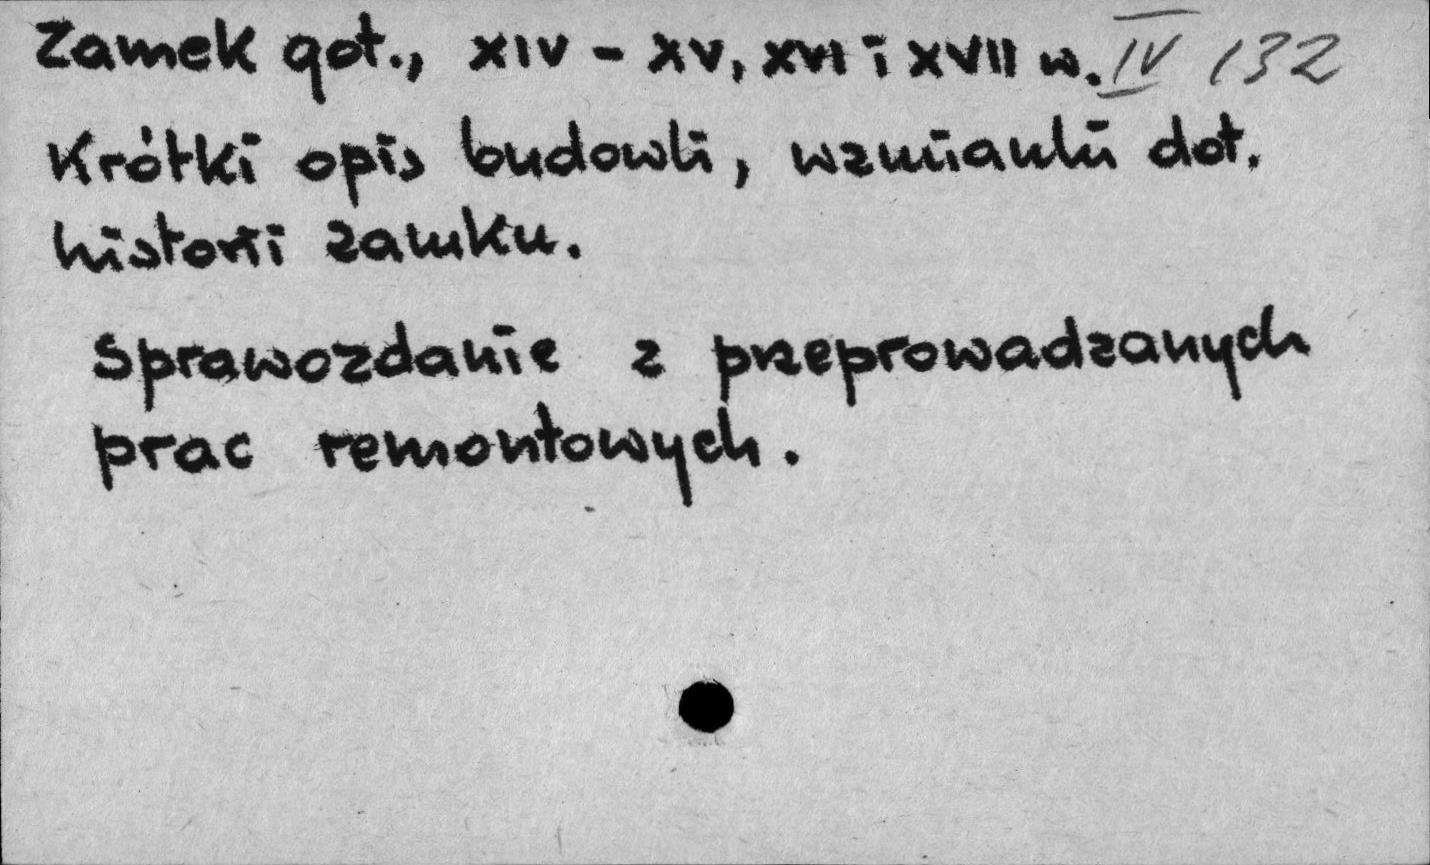 Zamek got., XIV - XV, XVI i XVII w. IV 132
Krótki opis budowli, wzmianki dot.
historii zamku.
Sprawozdanie z przeprowadzanych
prac remontowych.